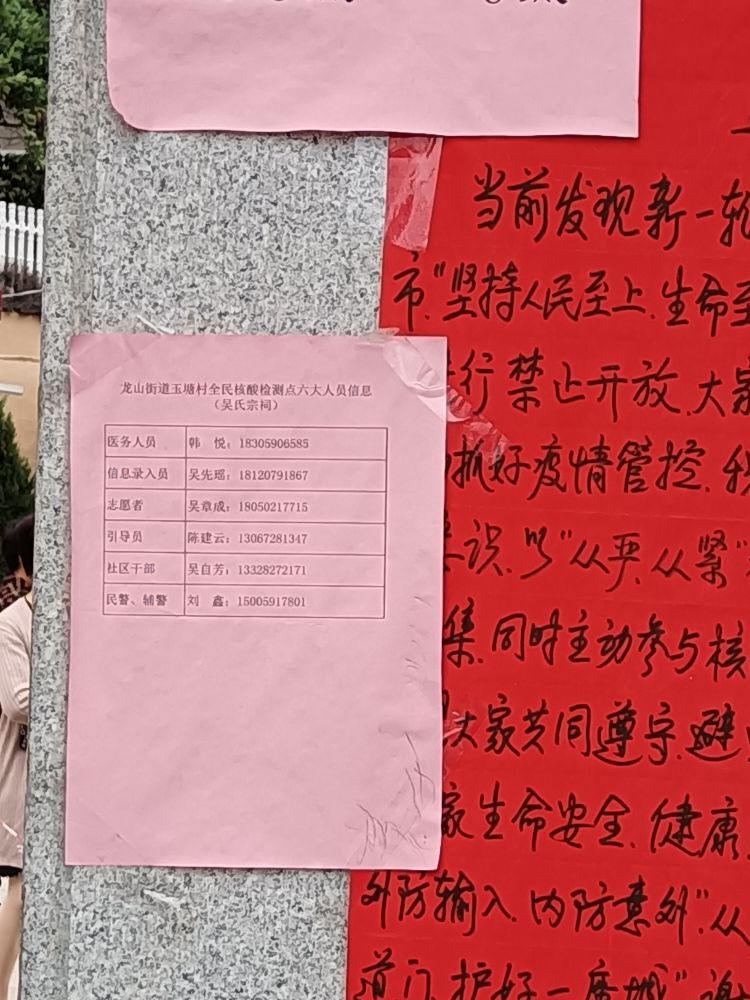 龙山街道玉塘村全民核酸检测点六大人员信息
（吴氏宗祠）
医务人员 韩 悦：18305906585
信息录入员 吴先瑶：18120791867
志愿者 吴章成：18050217715
引导员 陈建云：13067281347
社区干部 吴自芳：13328272171
民警、辅警 刘 鑫：15005917801
当前发现新一轮
市"坚持人民至上、生命至
行禁止开放、大家
抓好疫情管控、我
识、以"从严、从紧"
集、同时主动参与核
大家共同遵守、避
家生命安全、健康、
外防输入、内防意外"、从
道门、护好一座城"谢